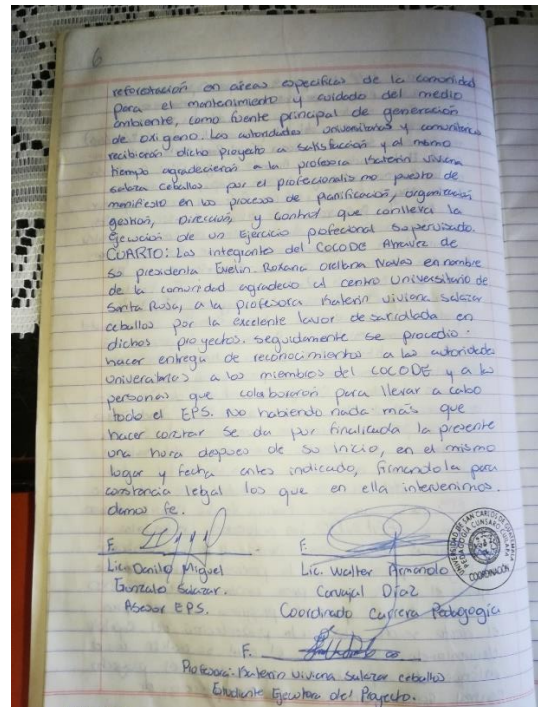 6
reforestación en áreas especificas de la comunidad
para el mantenimiento y cuidado del medio
ambiente, como fuente principal de generación
de oxigeno. Las autoridades universitarias y comunitarias
recibieron dicho proyecto a satisfacción y al mismo
tiempo agradecieron a la profesora Katerin viviana
salazar ceballos por el profecionalismo puesto de
manifiesto en los proceso de planificación, organización
gestión, Dirección, y control que conlleva la
Ejecución de un Ejercicio profecional supervisado.
CUARTO: Los integrantes del COCODE Atravez de
su presidenta Evelin Roxana orellana Navas en nombre
de la comunidad agradecio al centro Universitario de
Santa Rosa, a la profesora Katerin viviana salazar
ceballos por la excelente lavor desarrollada en
dichos proyectos. seguidamente se procedio.
hacer entrega de reconocimientos a las autoridades
Univeratarios a los miembros del COCODE y a las
personas que colaboraron para llevar a cabo
todo el EPS. No habiendo nada más que
hacer constar se da por finalizada la presente
una hora depues de su inicio, en el mismo
lugar y fecha antes indicado, firmandola para
constancia legal los que en ella intervenimos.
damos fe.
F.
F.
Lic. Danilo Miguel
Lic. Walter Armando
Gonzalo Salazar.
Carvajal Díaz
Asesor EPS.
Coordinado Carrera Pedagogia
UNIVERSIDAD DE SAN CARLOS DE GUATEMALA
PEDAGOGIA CUNSARO CUILAPA
COORDINACIÓN
F.
Profesora: Katerin viviana salazar ceballos
Estudiante Ejecutora del Proyecto.